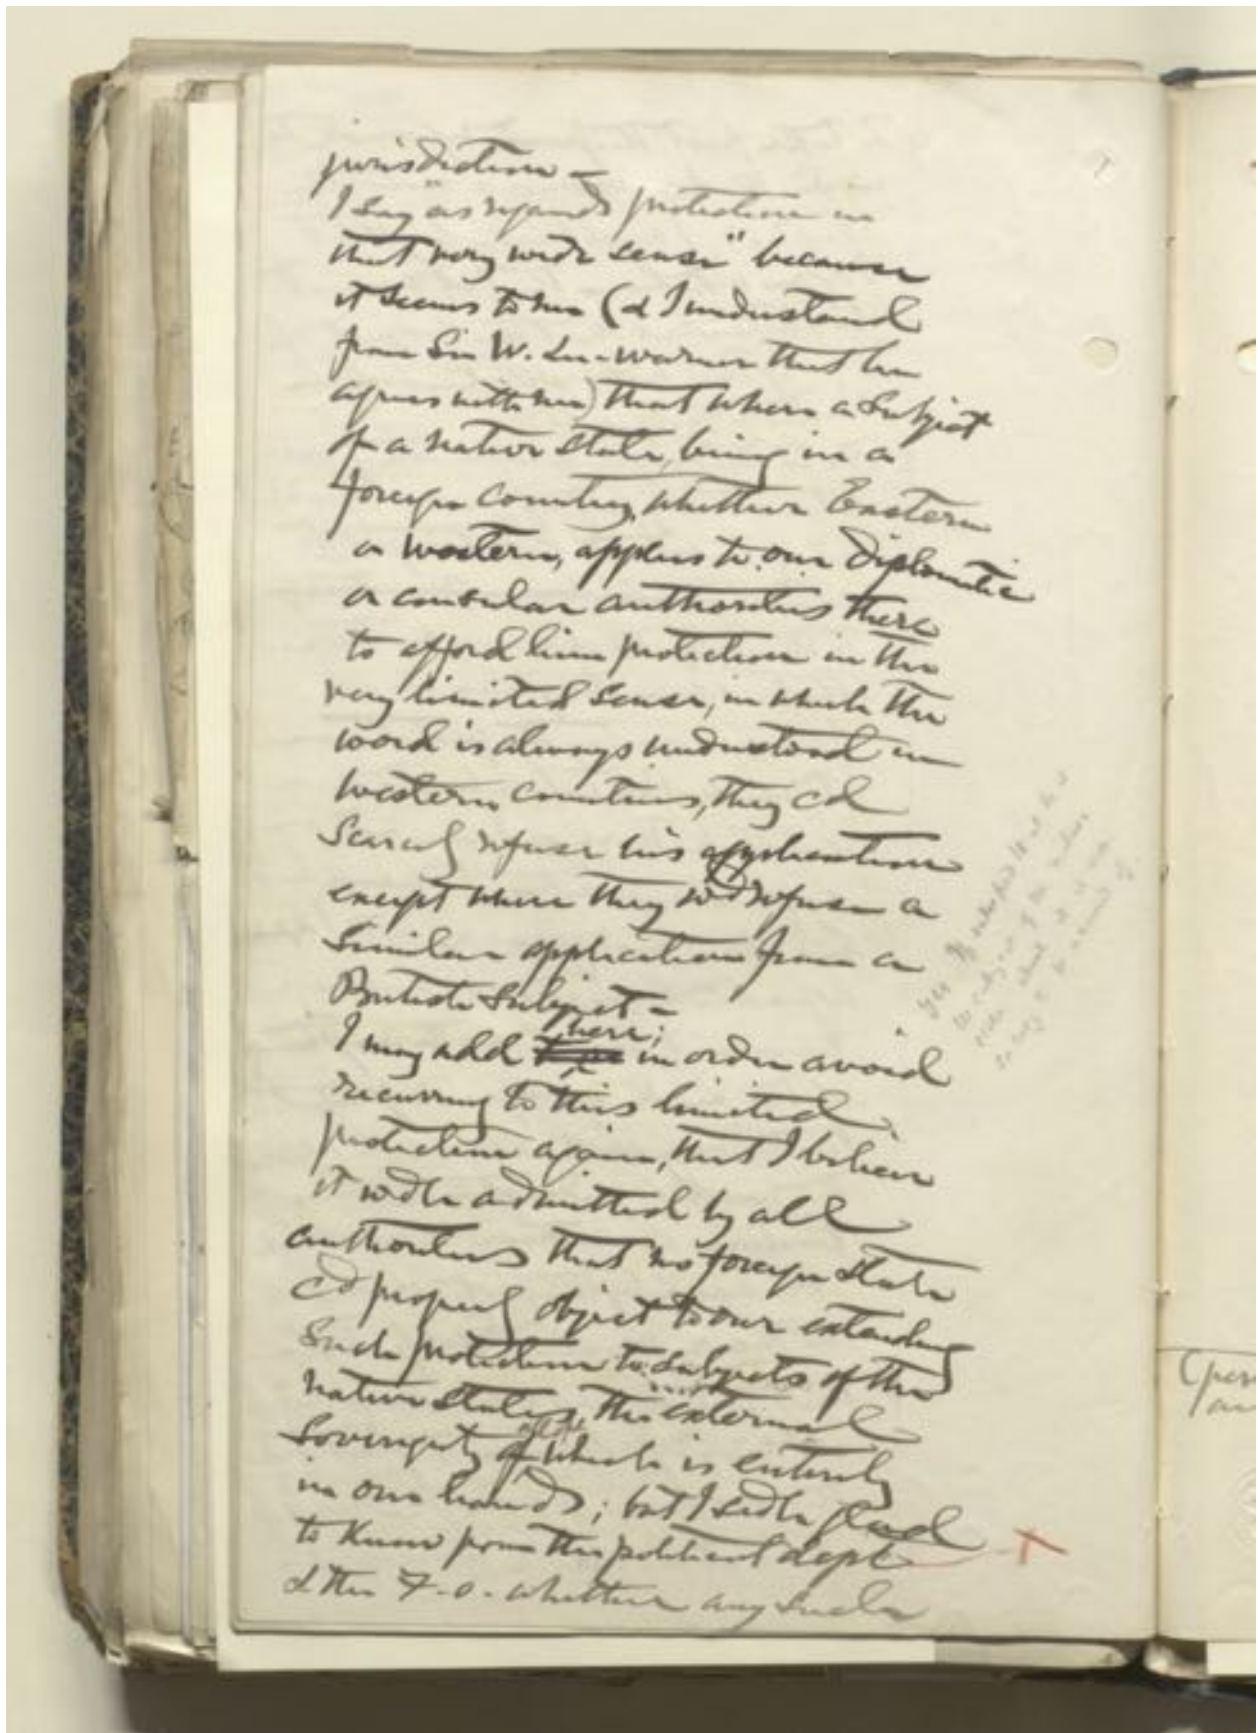 jurisdiction –
I say "as regards protection in
that very wide sense" because
it seems to me (& I understand
from Sir W. Lee-Warner that he
agrees with me) that where a subject
of a native state, being in a
foreign country, whether Eastern
or Western, applies to our diplomatic
or consular authorities there
to afford him protection in the
very limited sense, in which the
word is always understood in
western countries, they cd
scarcely refuse his application
except where they wd refuse a
similar application from a
British Subject –
I may add here; in order avoid
recurring to this limited
protection again, that I believe
it wd be admitted by all
authorities that no foreign state
cd properly object to our extending
such protection to subjects of the
native states, the external
sovereignty of which is entirely
in our hands; but I sd be glad
to know from the political dept
& the F.O. whether any such
yes
(pers